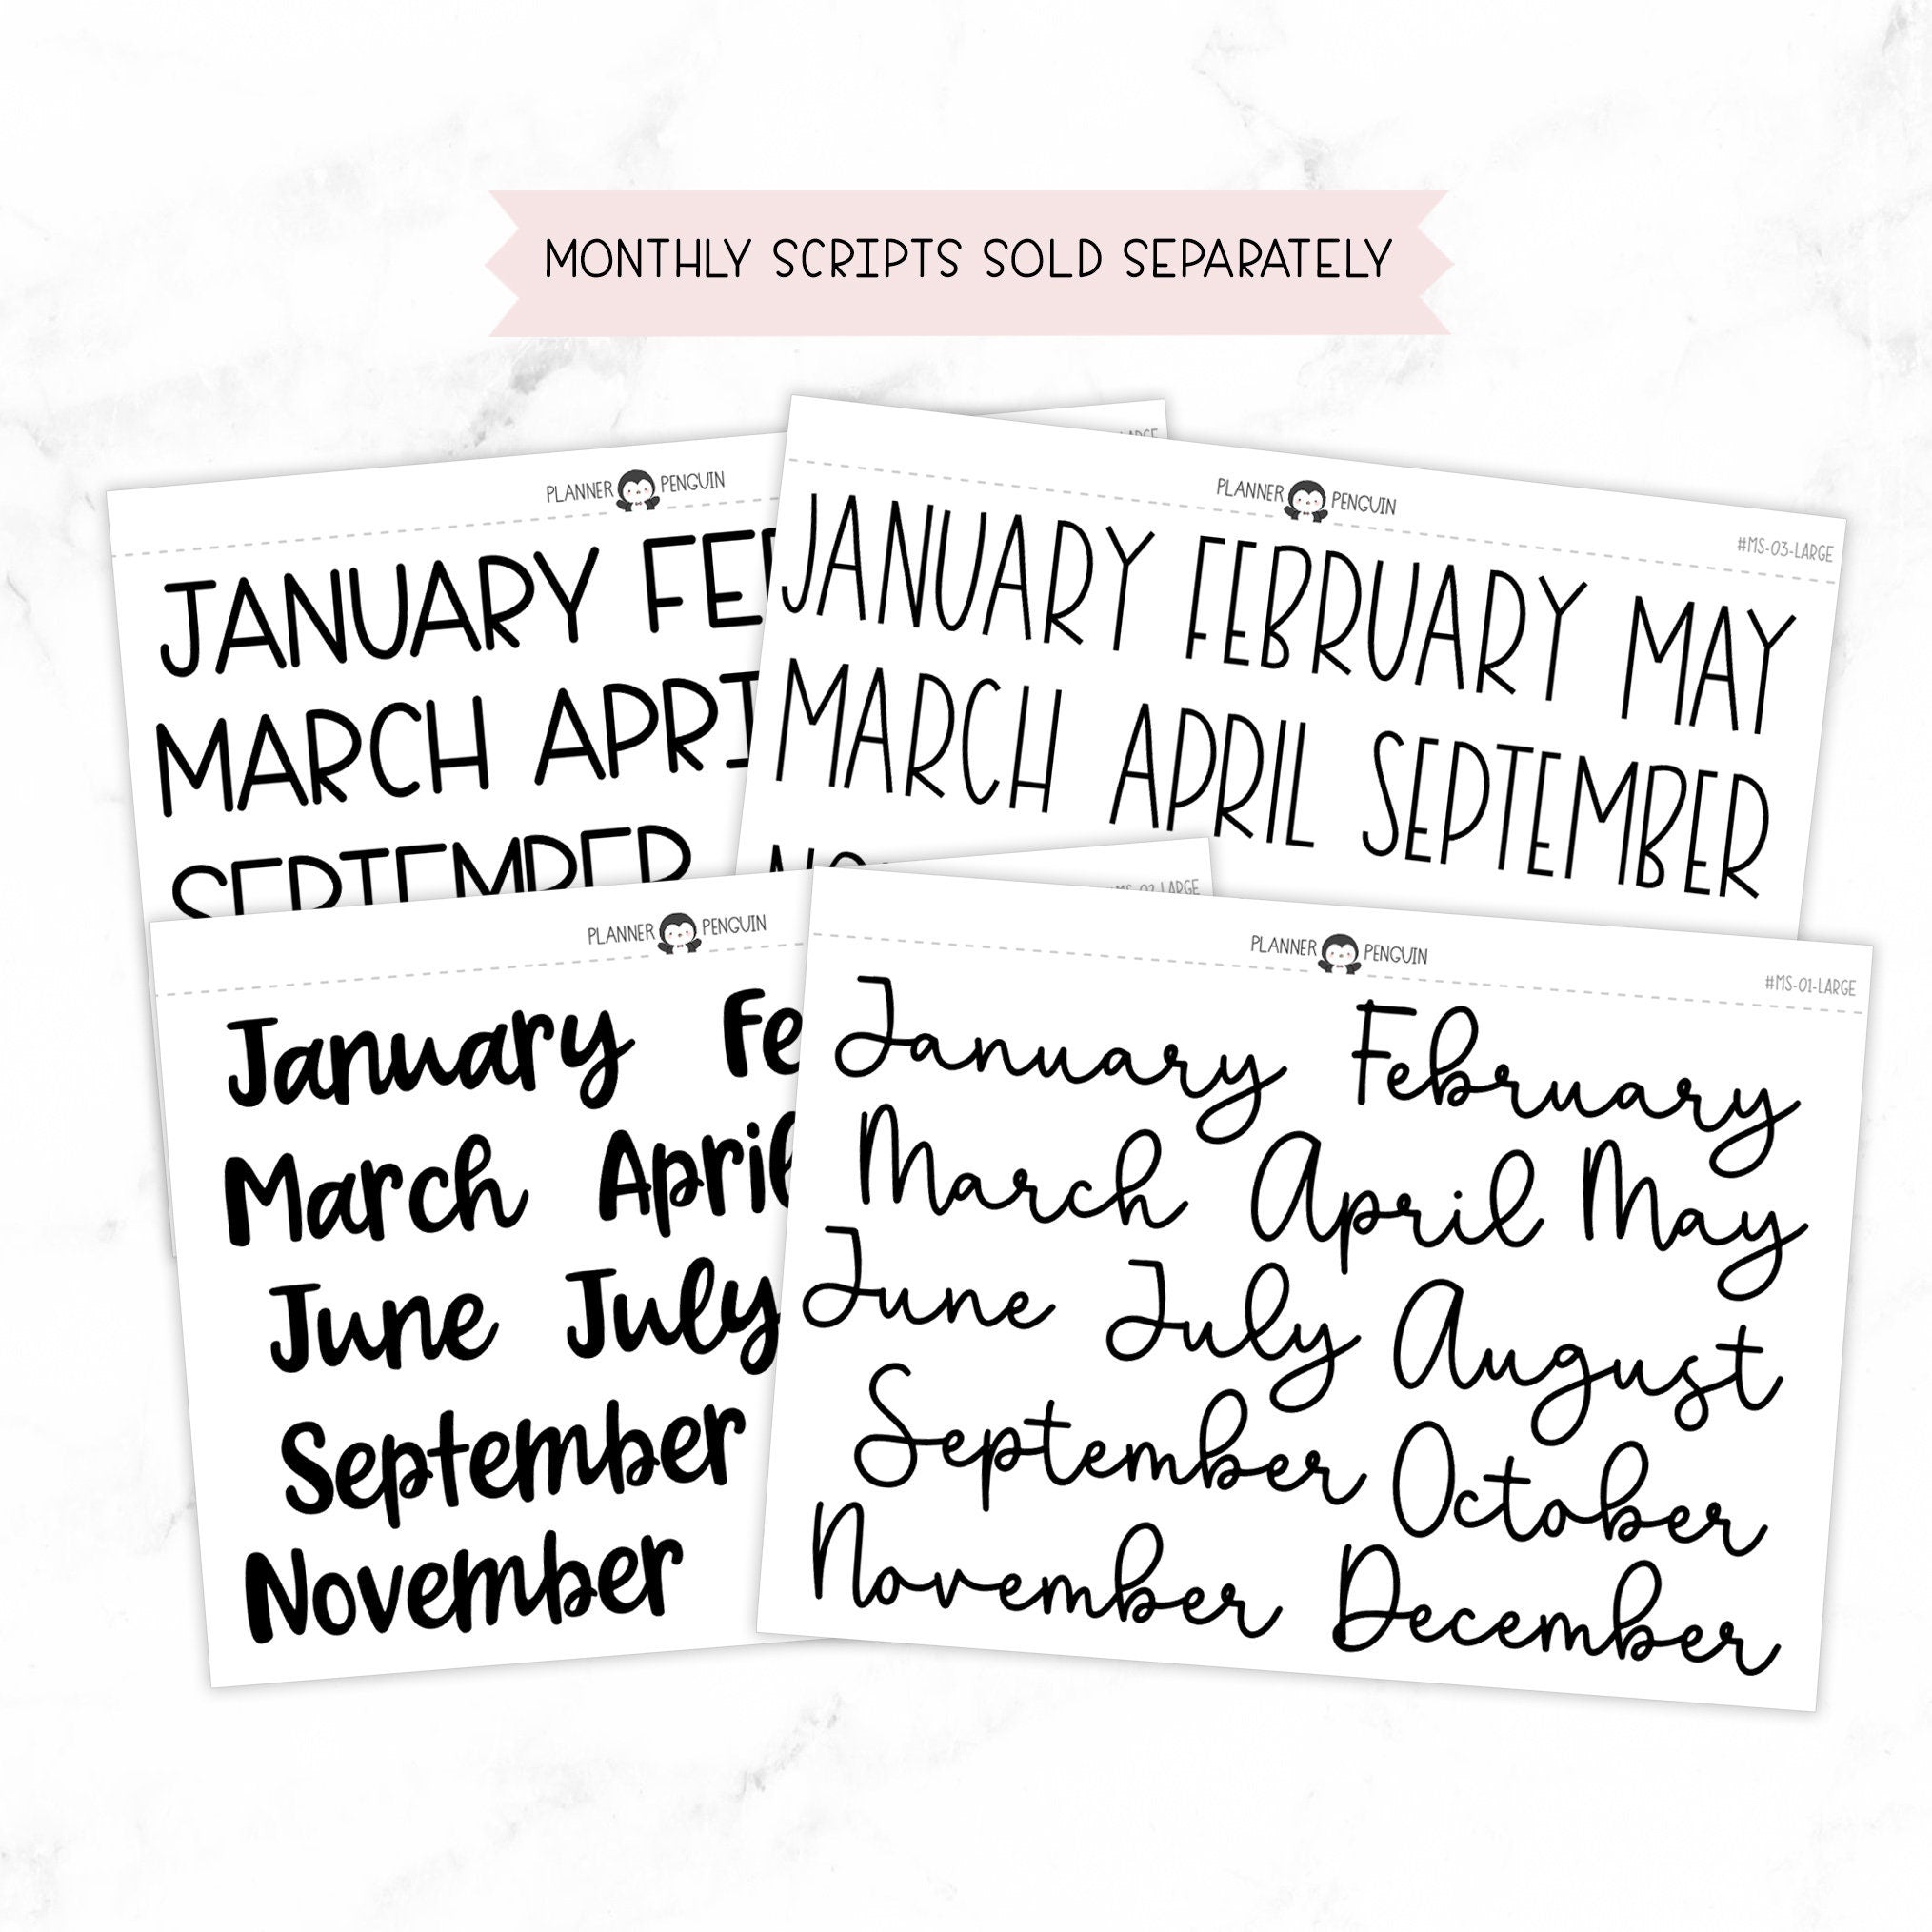 MONTHLY SCRIPTS SOLD SEPARATELY
PLANNER PENGUIN
LARGE
JANUARY
MARCH
SEPTEMBER
PLANNER PENGUIN
#MS-03-LARGE
JANUARY FEBRUARY MAY
MARCH APRIL SEPTEMBER
PLANNER PENGUIN
MS-02-LARGE
January
March April
June July
September
November
PLANNER PENGUIN
#MS-01-LARGE
January February
March April May
June July August
September October
November December